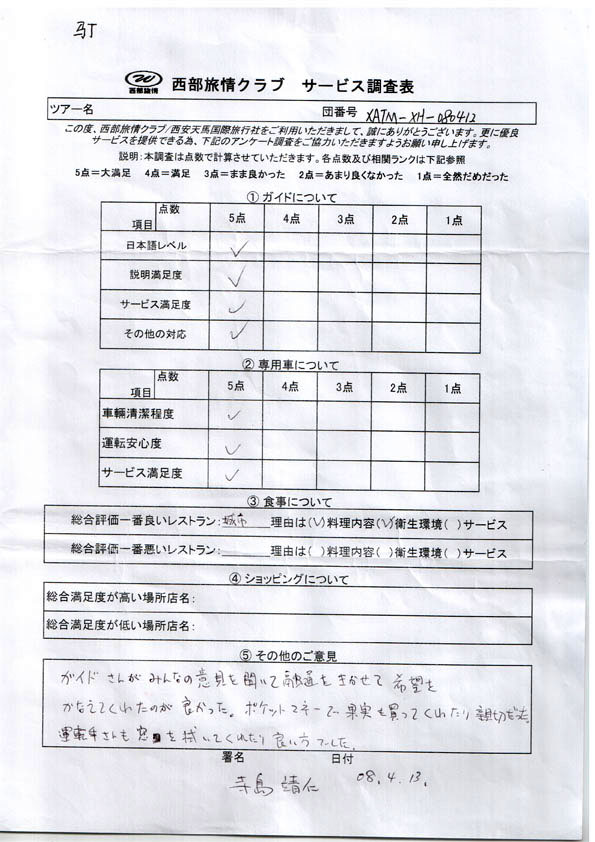 西部旅情
西部旅情クラブ サービス調査表
ツアー名 団番号 XATM-XH-080412
この度、西部旅情クラブ/西安天馬国際旅行社をご利用いただきまして、誠にありがとうございます。更に優良
サービスを提供できる為、下記のアンケート調査をご協力いただきますようお願い申し上げます。
説明:本調査は点数で計算させていただきます。各点数及び相関ランクは下記参照
5点=大満足 4点=満足 3点=まま良かった 2点=あまり良くなかった 1点=全然だめだった
① ガイドについて
点数 項目 5点 4点 3点 2点 1点
日本語レベル ✓
説明満足度 ✓
サービス満足度 ✓
その他の対応 ✓
② 専用車について
点数 項目 5点 4点 3点 2点 1点
車輛清潔程度 ✓
運転安心度 ✓
サービス満足度 ✓
③ 食事について
総合評価一番良いレストラン:城市 理由は(✓)料理内容(✓)衛生環境( )サービス
総合評価一番悪いレストラン: 理由は( )料理内容( )衛生環境( )サービス
④ ショッピングについて
総合満足度が高い場所店名:
総合満足度が低い場所店名:
⑤ その他のご意見
ガイドさんがみんなの意見を聞いて融通をきかせて希望を
かなえてくれたのが良かった。ポケットマネーで果実も買ってくれたり親切だった
運転手さんも窓を拭いてくれたり良い方でした。
署名 日付
寺島 靖仁 08.4.13.